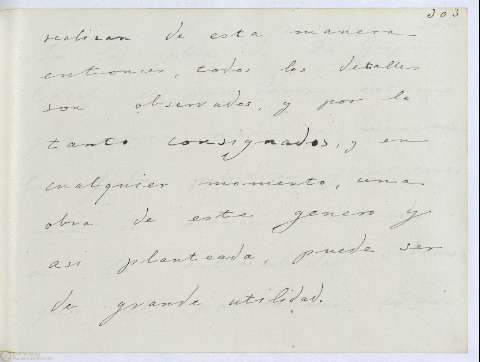 303
realizan de esta manera
entonces, todos los detalles
son observados, y por lo
tanto consignados, y en
cualquier momento, una
obra de este genero y
asi planteada, puede ser
de grande utilidad.